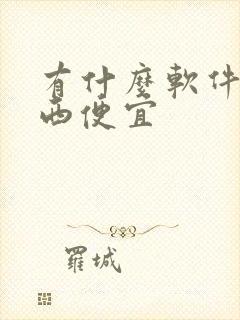 有什麼軟件
西便宜
羅城